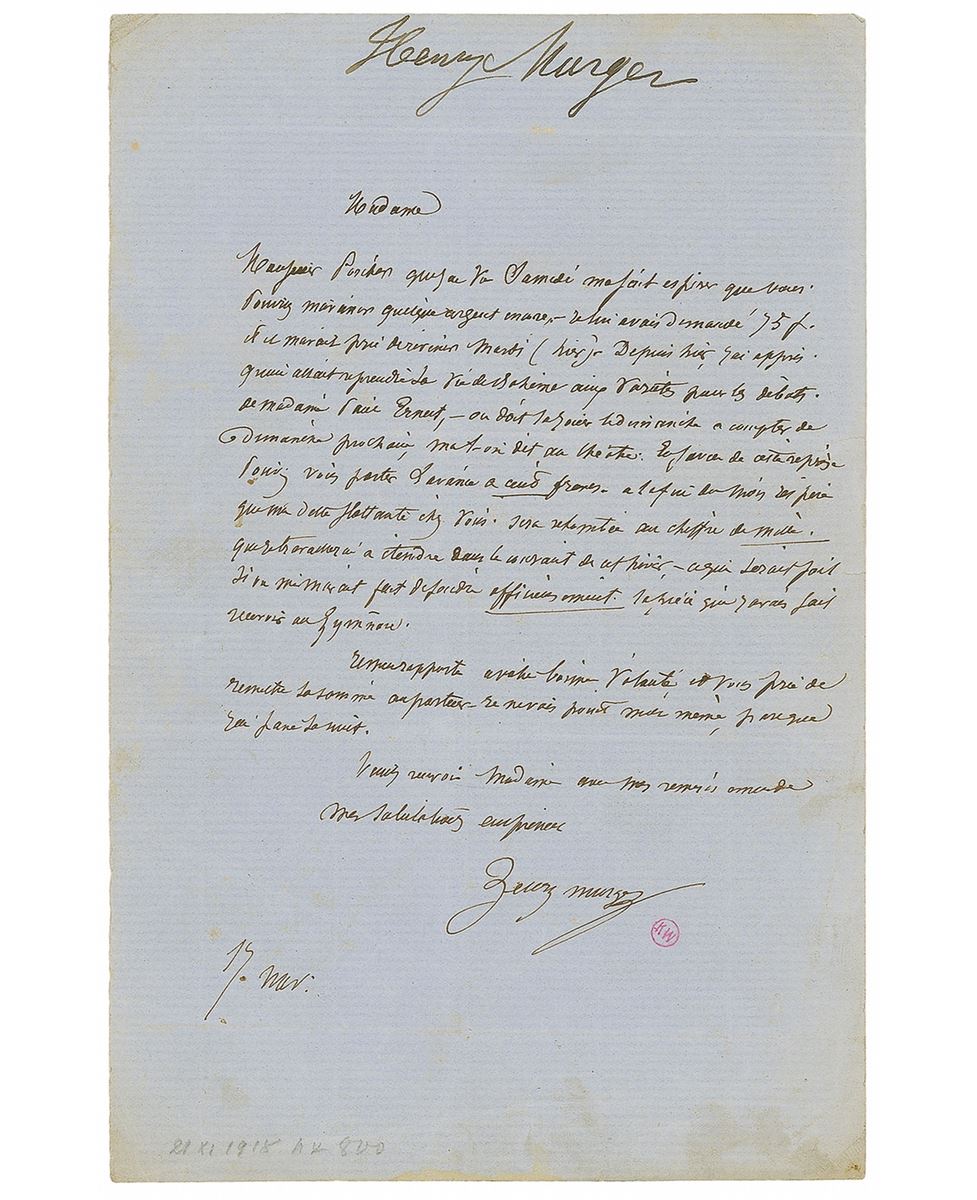 Henry Murger
Madame
Monsieur Porcher que j'ai vu Samedi m'a fait espérer que vous
pouviez m'avancer quelque argent encore, – je lui avais demandé 75 f.
et il m'avait prié de revenir Mardi (hier) – Depuis hier, j'ai appris
qu'on allait reprendre la Vie de Bohème aux Variétés pour les débuts
de madame Page Ernest, – on doit la jouer le dimanche a compter de
Dimanche prochain, m'a-t-on dit au théâtre. En faveur de cette reprise
vous porter l'avance a cent francs. a la fin du mois j'espère
que ma dette flottante chez vous sera retombée au chiffre de mille.
que je tacherai a éteindre dans le courant de cet hiver, – ce qui serait fait
si on ne m'avait fait défendre officieusement la pièce que j'avais fait
recevoir au Gymnase.
Je m'en rapporte a votre bonne volonté et vous prie de
remettre la somme au porteur – je ne vais pouvoir moi même, parce que
j'ai passé la nuit.
Veuillez recevoir Madame avec mes
mes salutations empressées
Henry Murger
17 Nov.
21 XI 1918 KW 800
KW